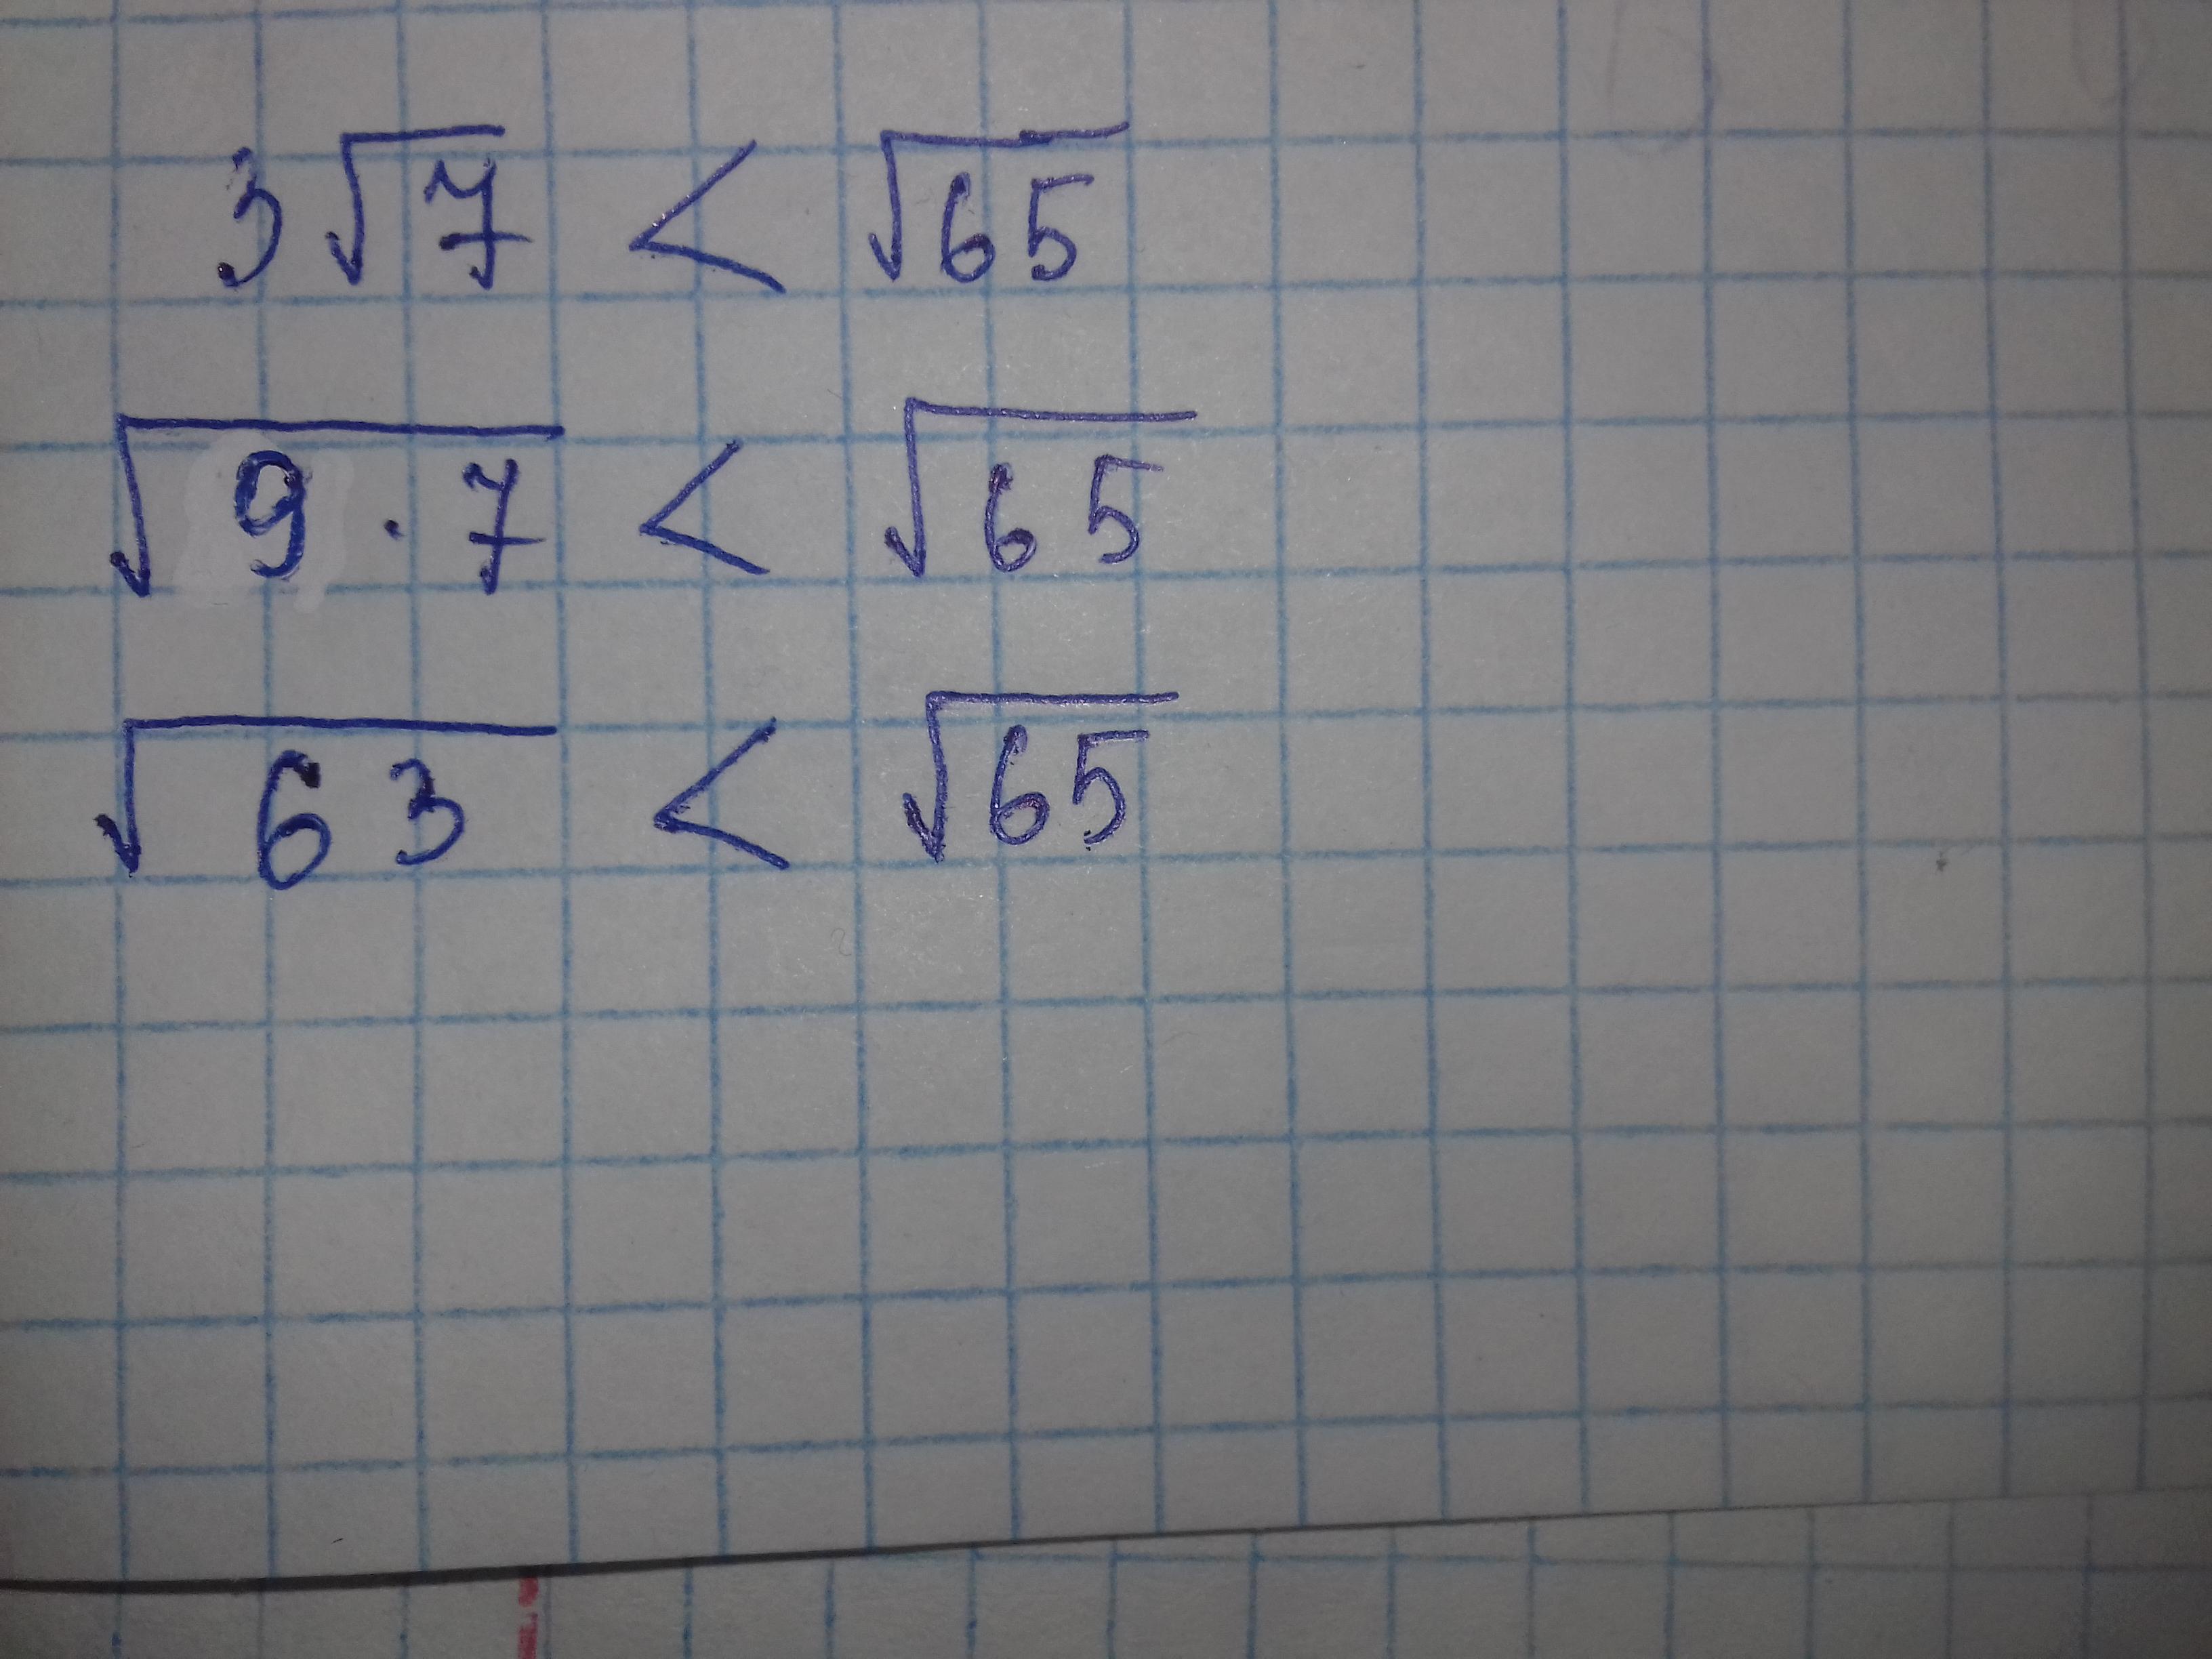 3√7 < √65
√9·7 < √65
√63 < √65